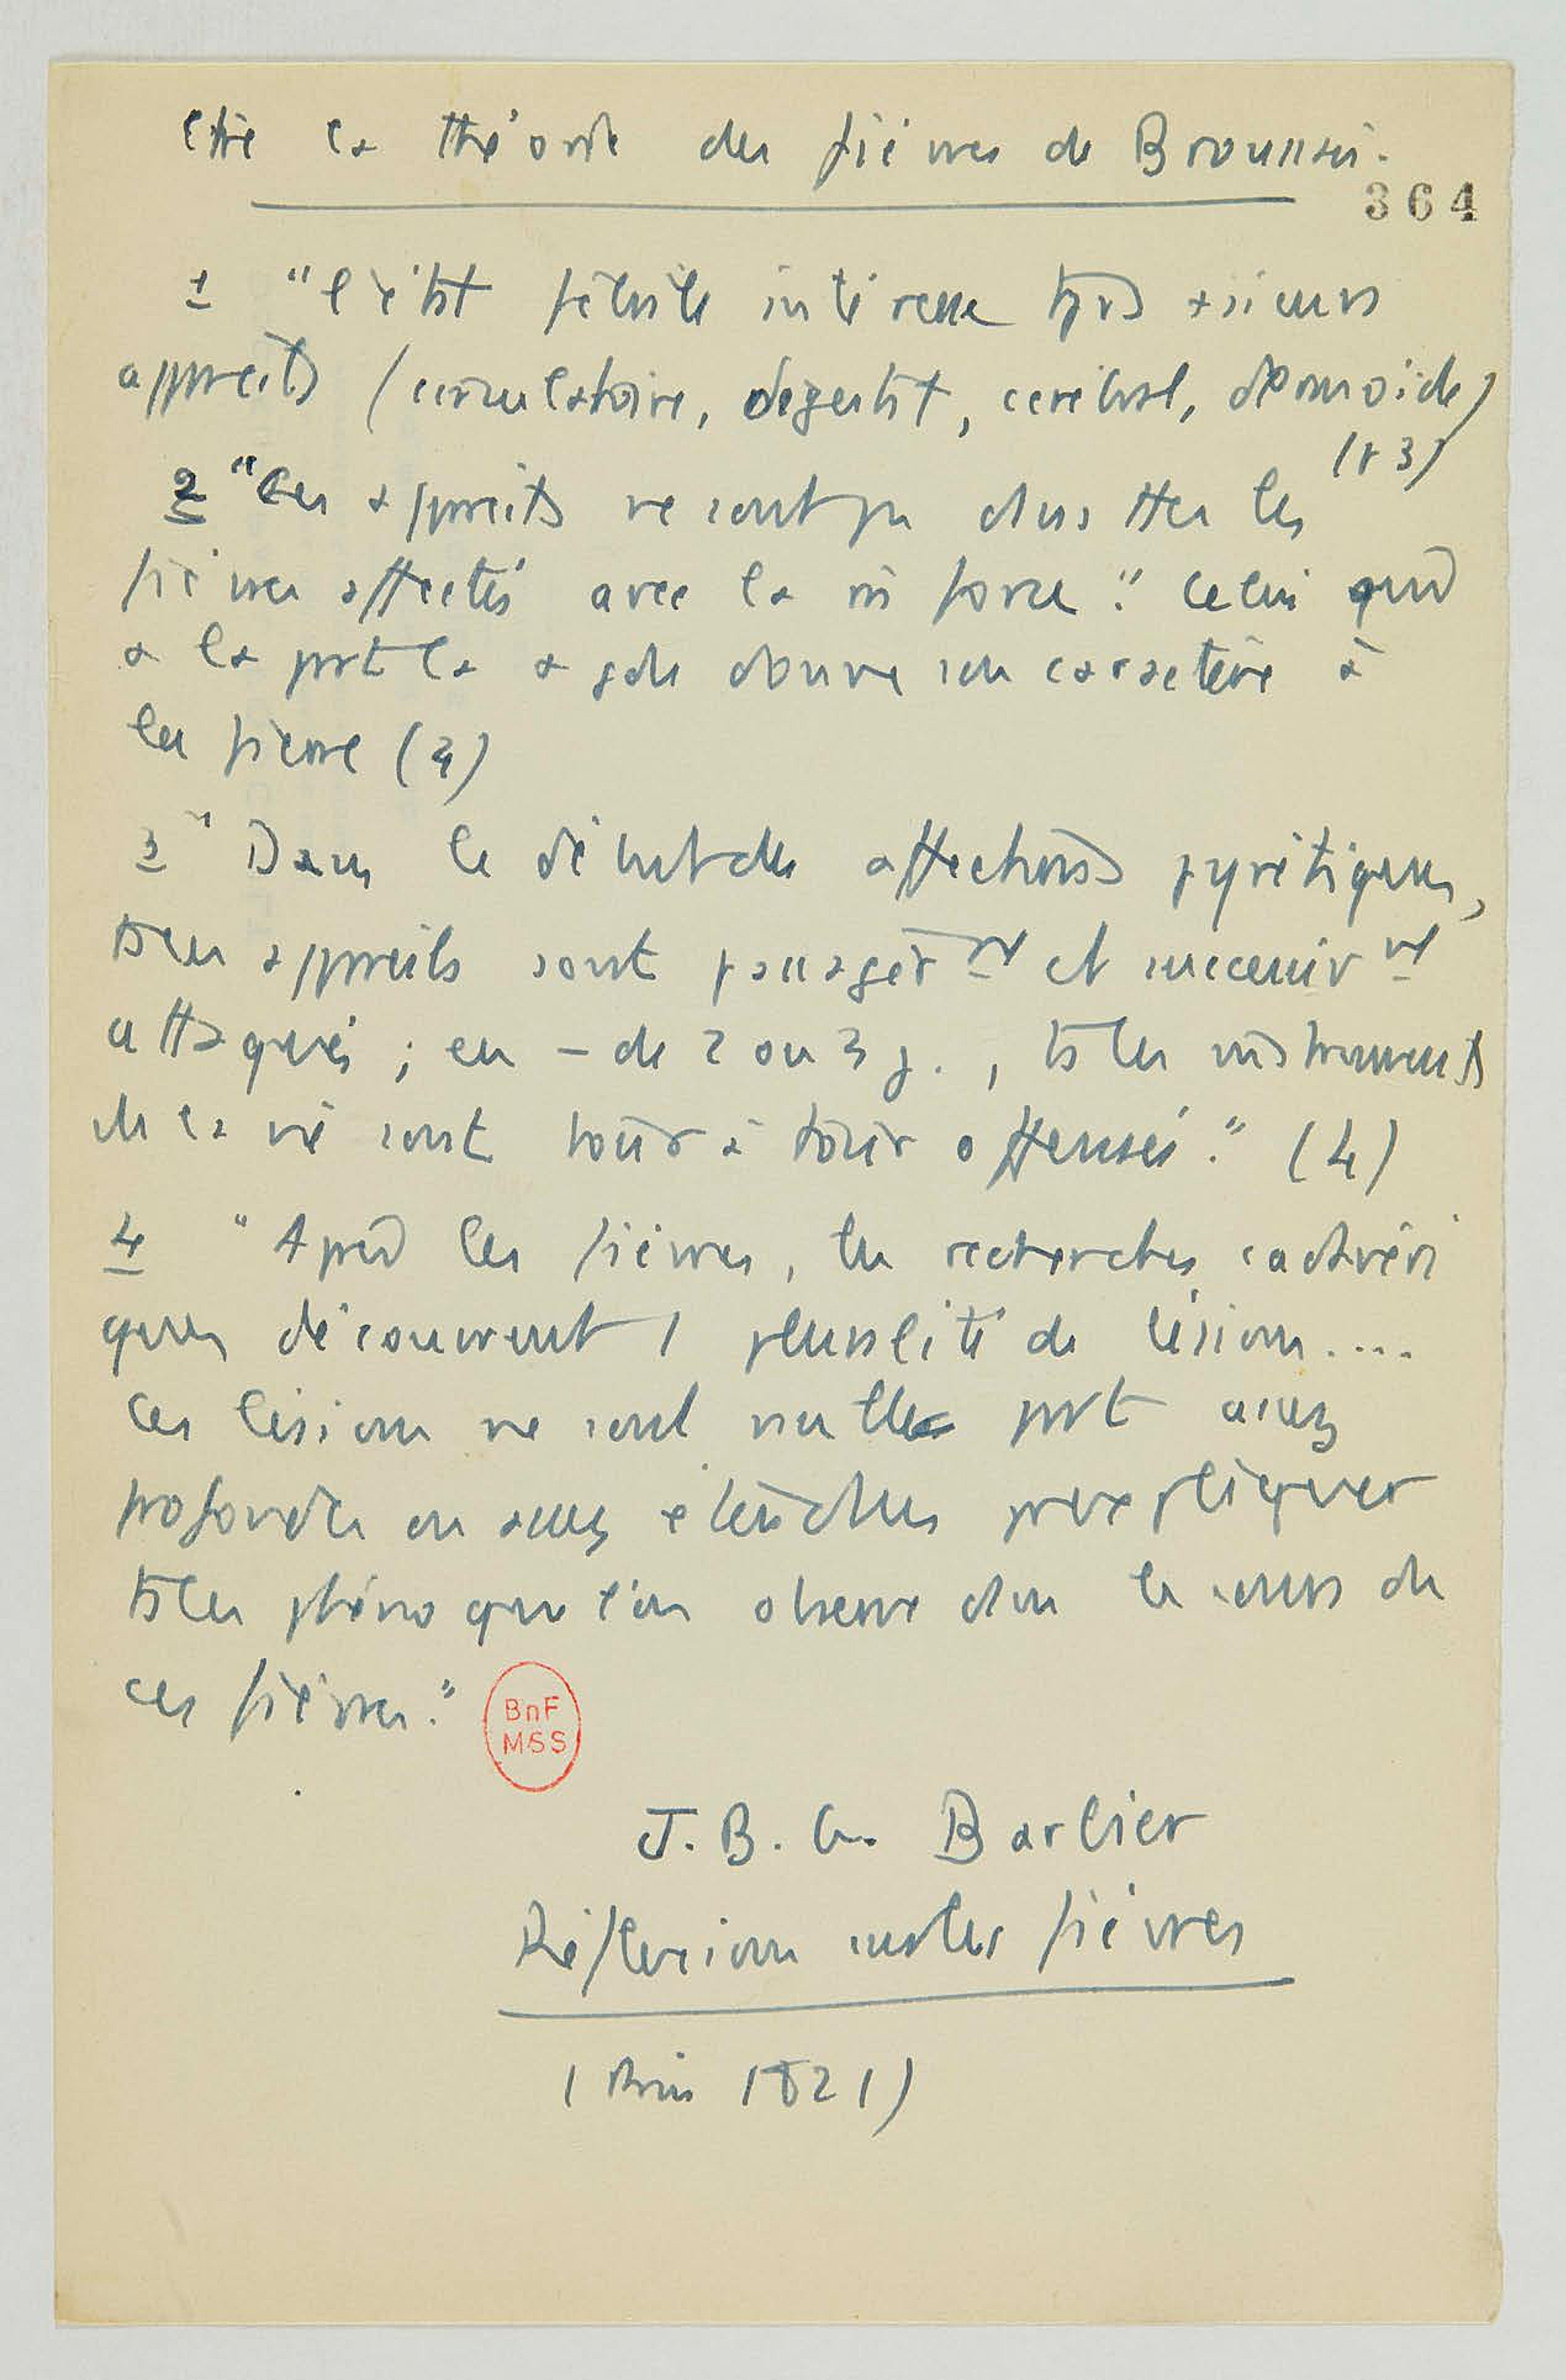 la théorie des fièvres de Broussais.
364
1 "L'état fébrile intéresse tjrs +sieurs
appareils (circulatoire, digestif, cérébral, dermoïde)
(p 3)
2 "Les appareils ne sont pas dans ttes les
fièvres affectés avec la m force." Celui qui
a la part la + gde donne son caractère à
la fièvre (4)
3 "Dans le début des affections pyrétiques,
ts les appareils sont passagèrmt et successivmt
attaqués ; en – de 2 ou 3 j., ts les instruments
de la vie sont tour à tour offensés." (4)
4 "Après les fièvres, les recherches cadavéri
ques découvrent 1 pluralité de lésions....
Ces lésions ne sont nulle part assez
profondes ou assez étendues pr expliquer
ts les phéno que l'on observe dans le cours de
ces fièvres."
BnF
MSS
J. B. G. Barbier
Réflexions sur les fièvres
1821)